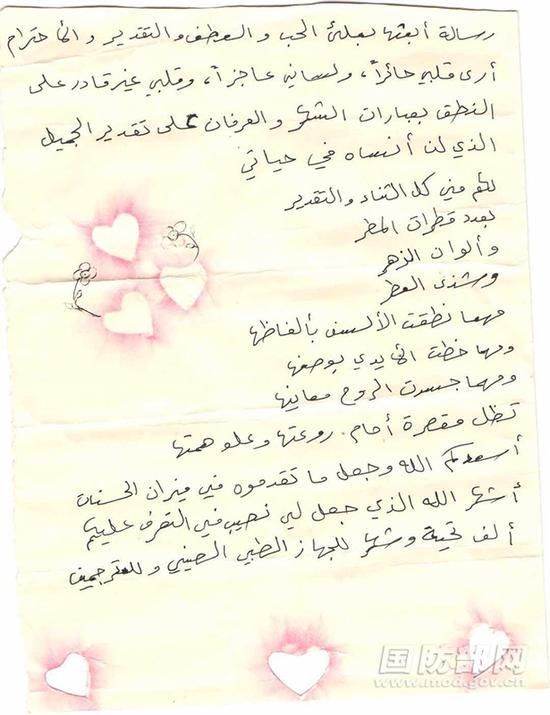 رسالة أبعثها بملئ الحب والعطف والتقدير والاحترام
أرى قلبي حائراً، ولساني عاجزاً، وقلبي غير قادر على
النطق بعبارات الشكر والعرفان على تقدير الجميل
الذي لن أنساه في حياتي
لكم مني كل الثناء والتقدير
بعدد قطرات المطر
وألوان الزهر
وشذى العطر
مهما نطقت الألسن بألفاظها
ومهما خطت الايدي بوصفها
ومهما جسدت الروح معانيها
تظل مقصرة أمام روعتها وعلو همتها
أسعدكم الله وجعل ما تقدموه في ميزان الحسنات
أشكر الله الذي جعل لي نصيب في التعرف عليكم
ألف تحية وشكر للجهاز الطبي الصيني وللمترجمين
国防部网
www.mod.gov.cn